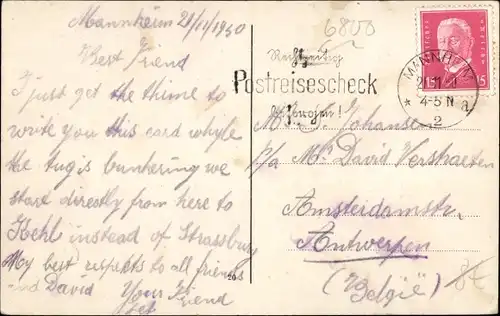 Mannheim 21/11/1930
Best Friend
I just get the thime to
write you this card whyle
the tug is bunkering we
start directly from here to
Kehl instead of Strassburg
My best respects to all friends
and David Your Friend
6800
Rechtzeitig
Postreisescheck
besorgen!
MANNHEM
4-5 N
* 2 a
15 15
Mr. J. Johanse
p/a Mr David Verstraeten
Amsterdamstr.
Antwerpen
(België)
8€